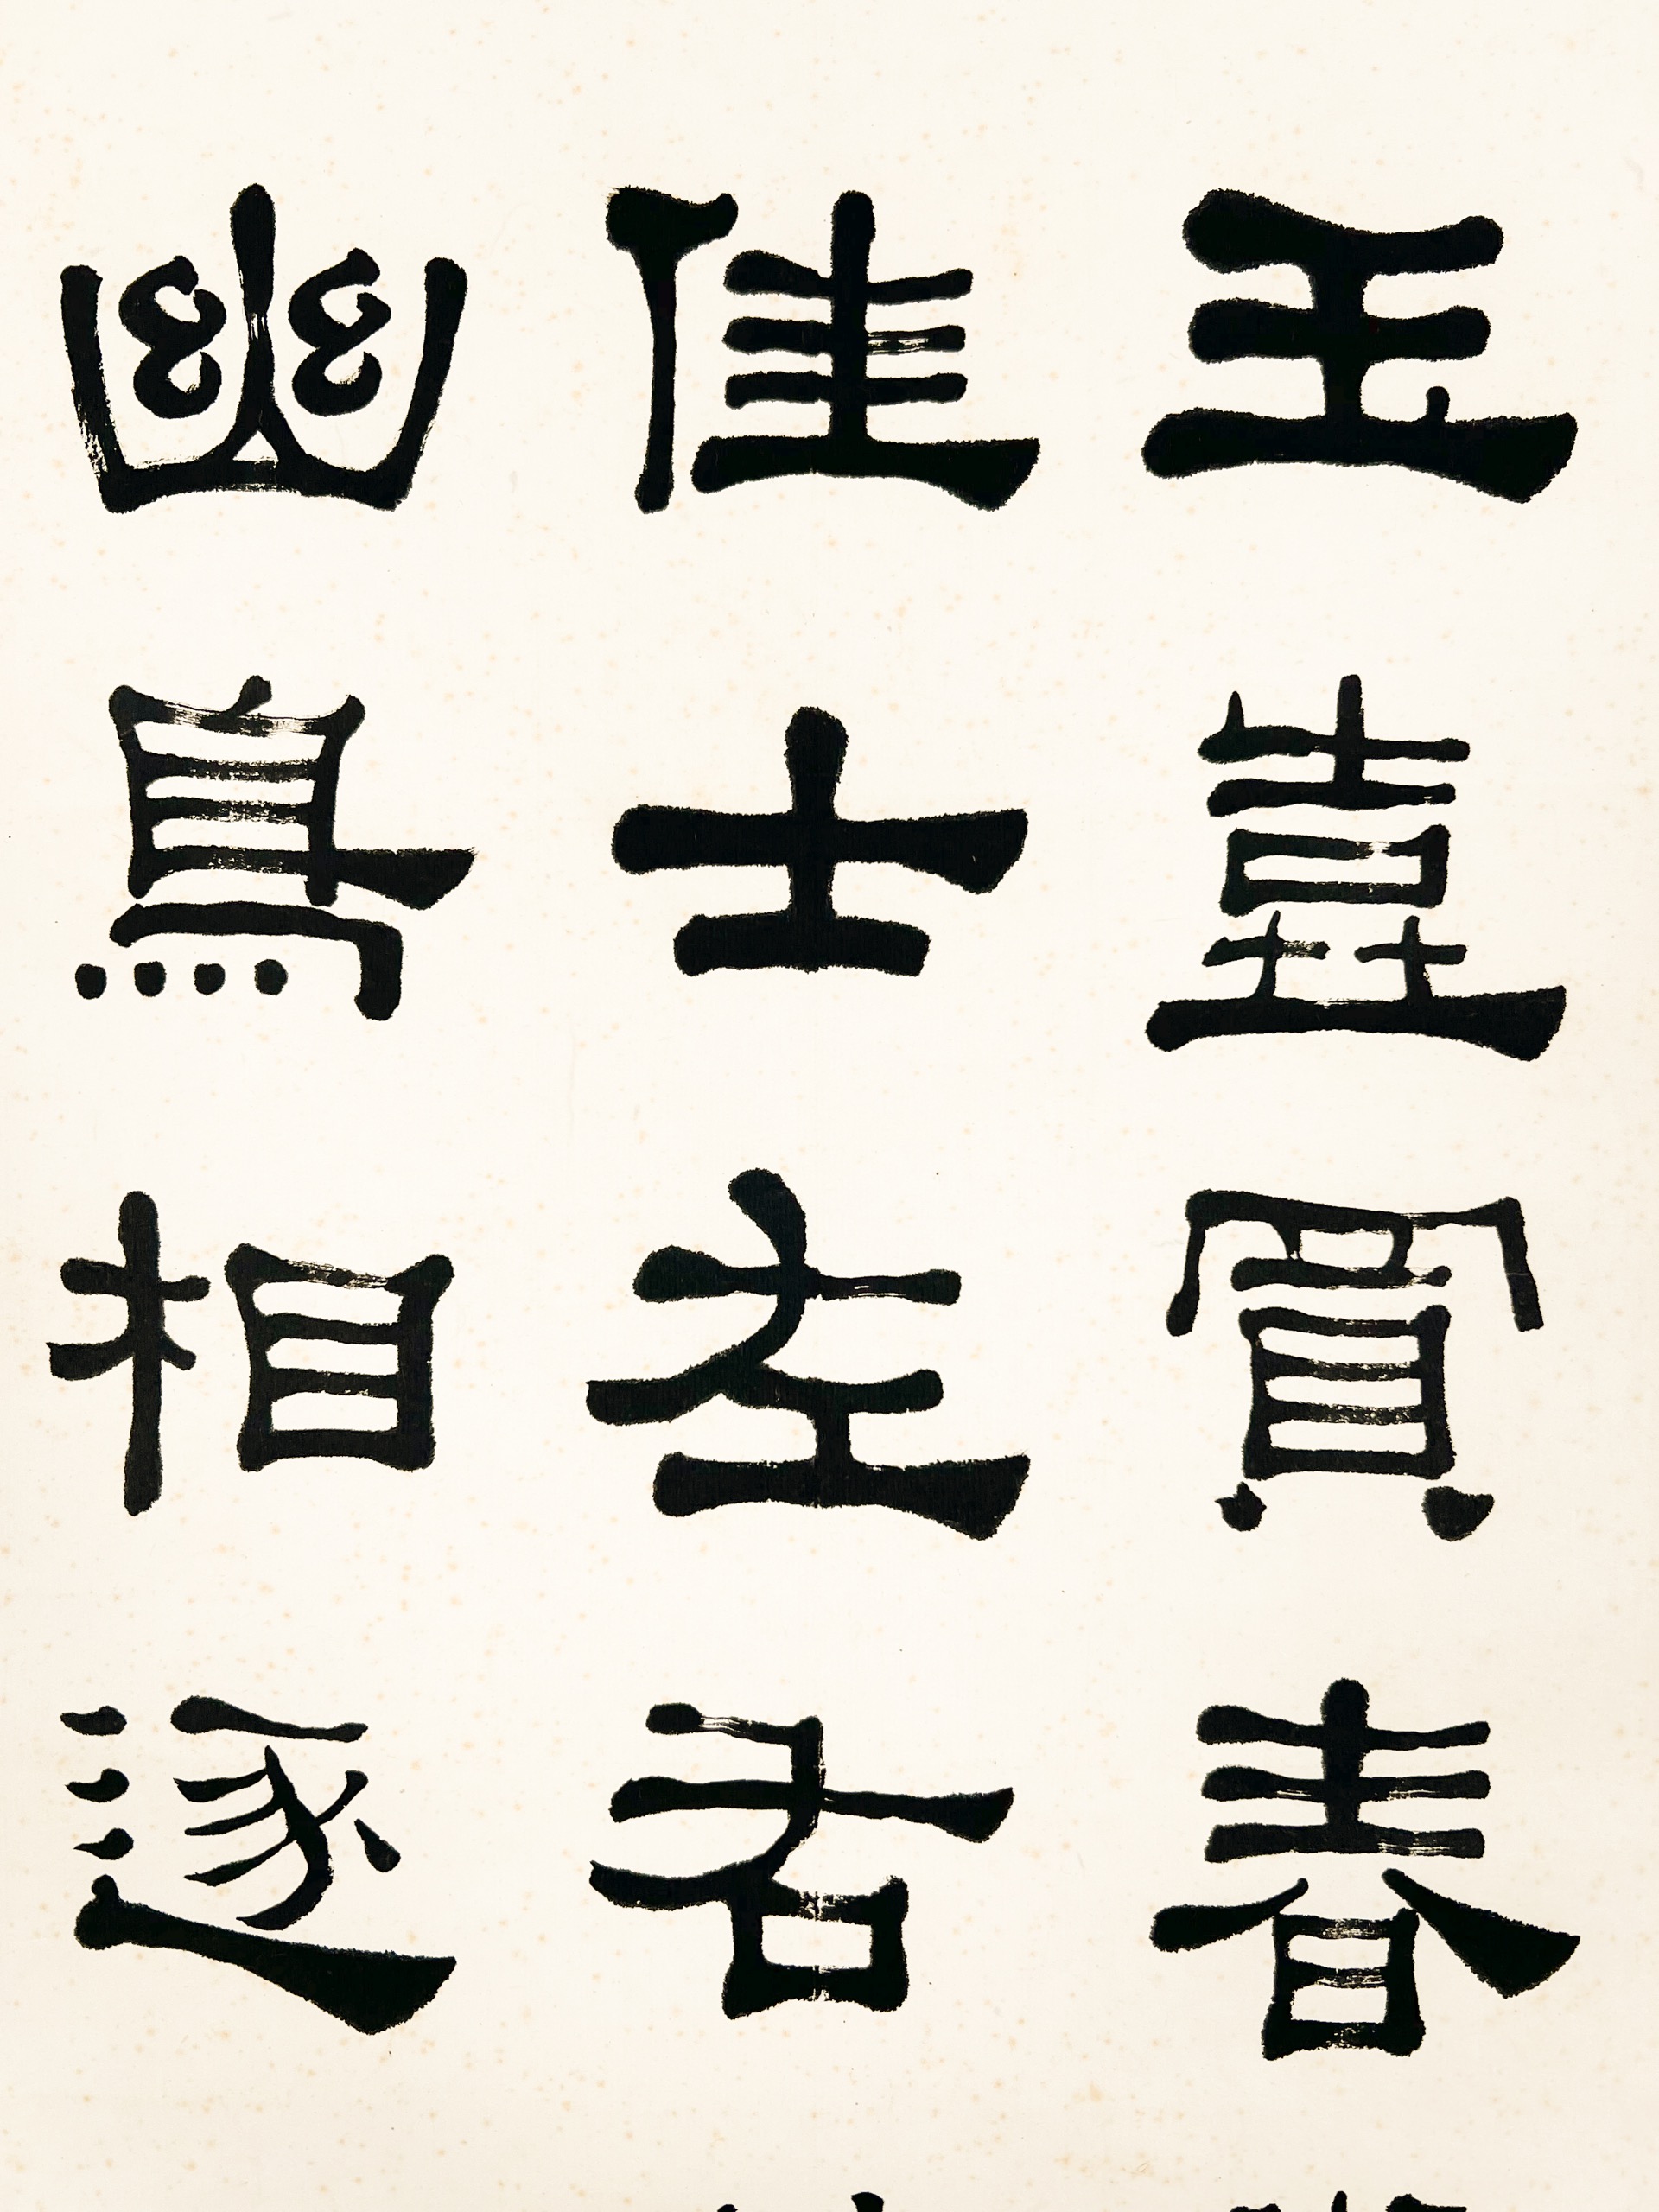 玉壺買春
佳士左右
幽鳥相逐